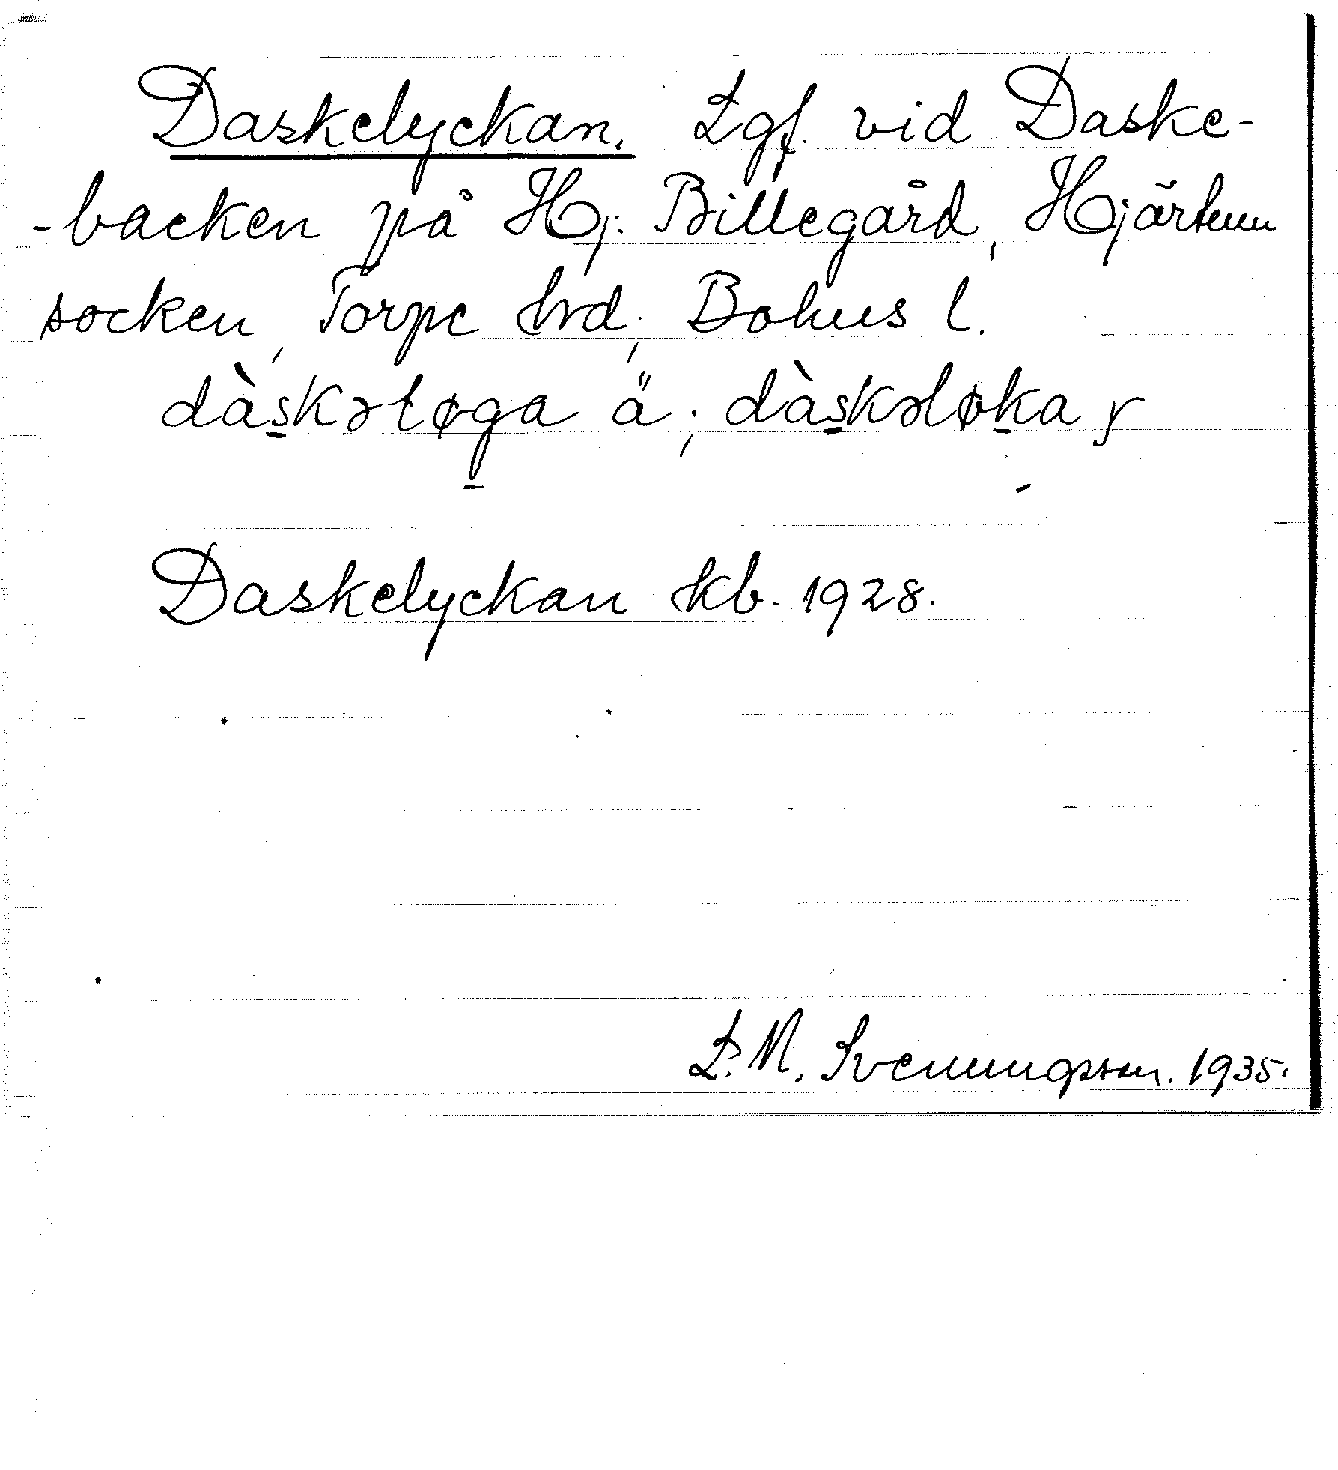 Daskelyckan. Lgf. vid Daske-
-backen på Hj. Billegård, Hjärtum
socken, Torpe hrd, Bohus l.
dàskəløga ä; dàskəløka y
Daskelyckan kb. 1928.
L. M. Svenungsson. 1935.